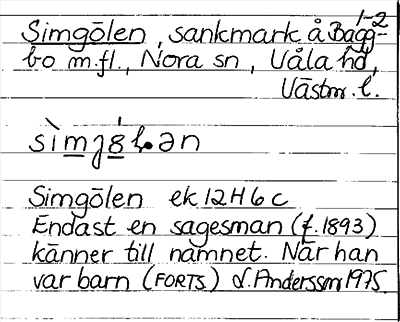 1-2
Simgölen, sankmark å Bagg-
bo m.fl., Nora sn, Våla hd,
Västm. l.
Simgölen ek 12H6c
Endast en sagesman (f. 1893)
känner till namnet. När han
var barn (FORTS) L. Andersson 1975